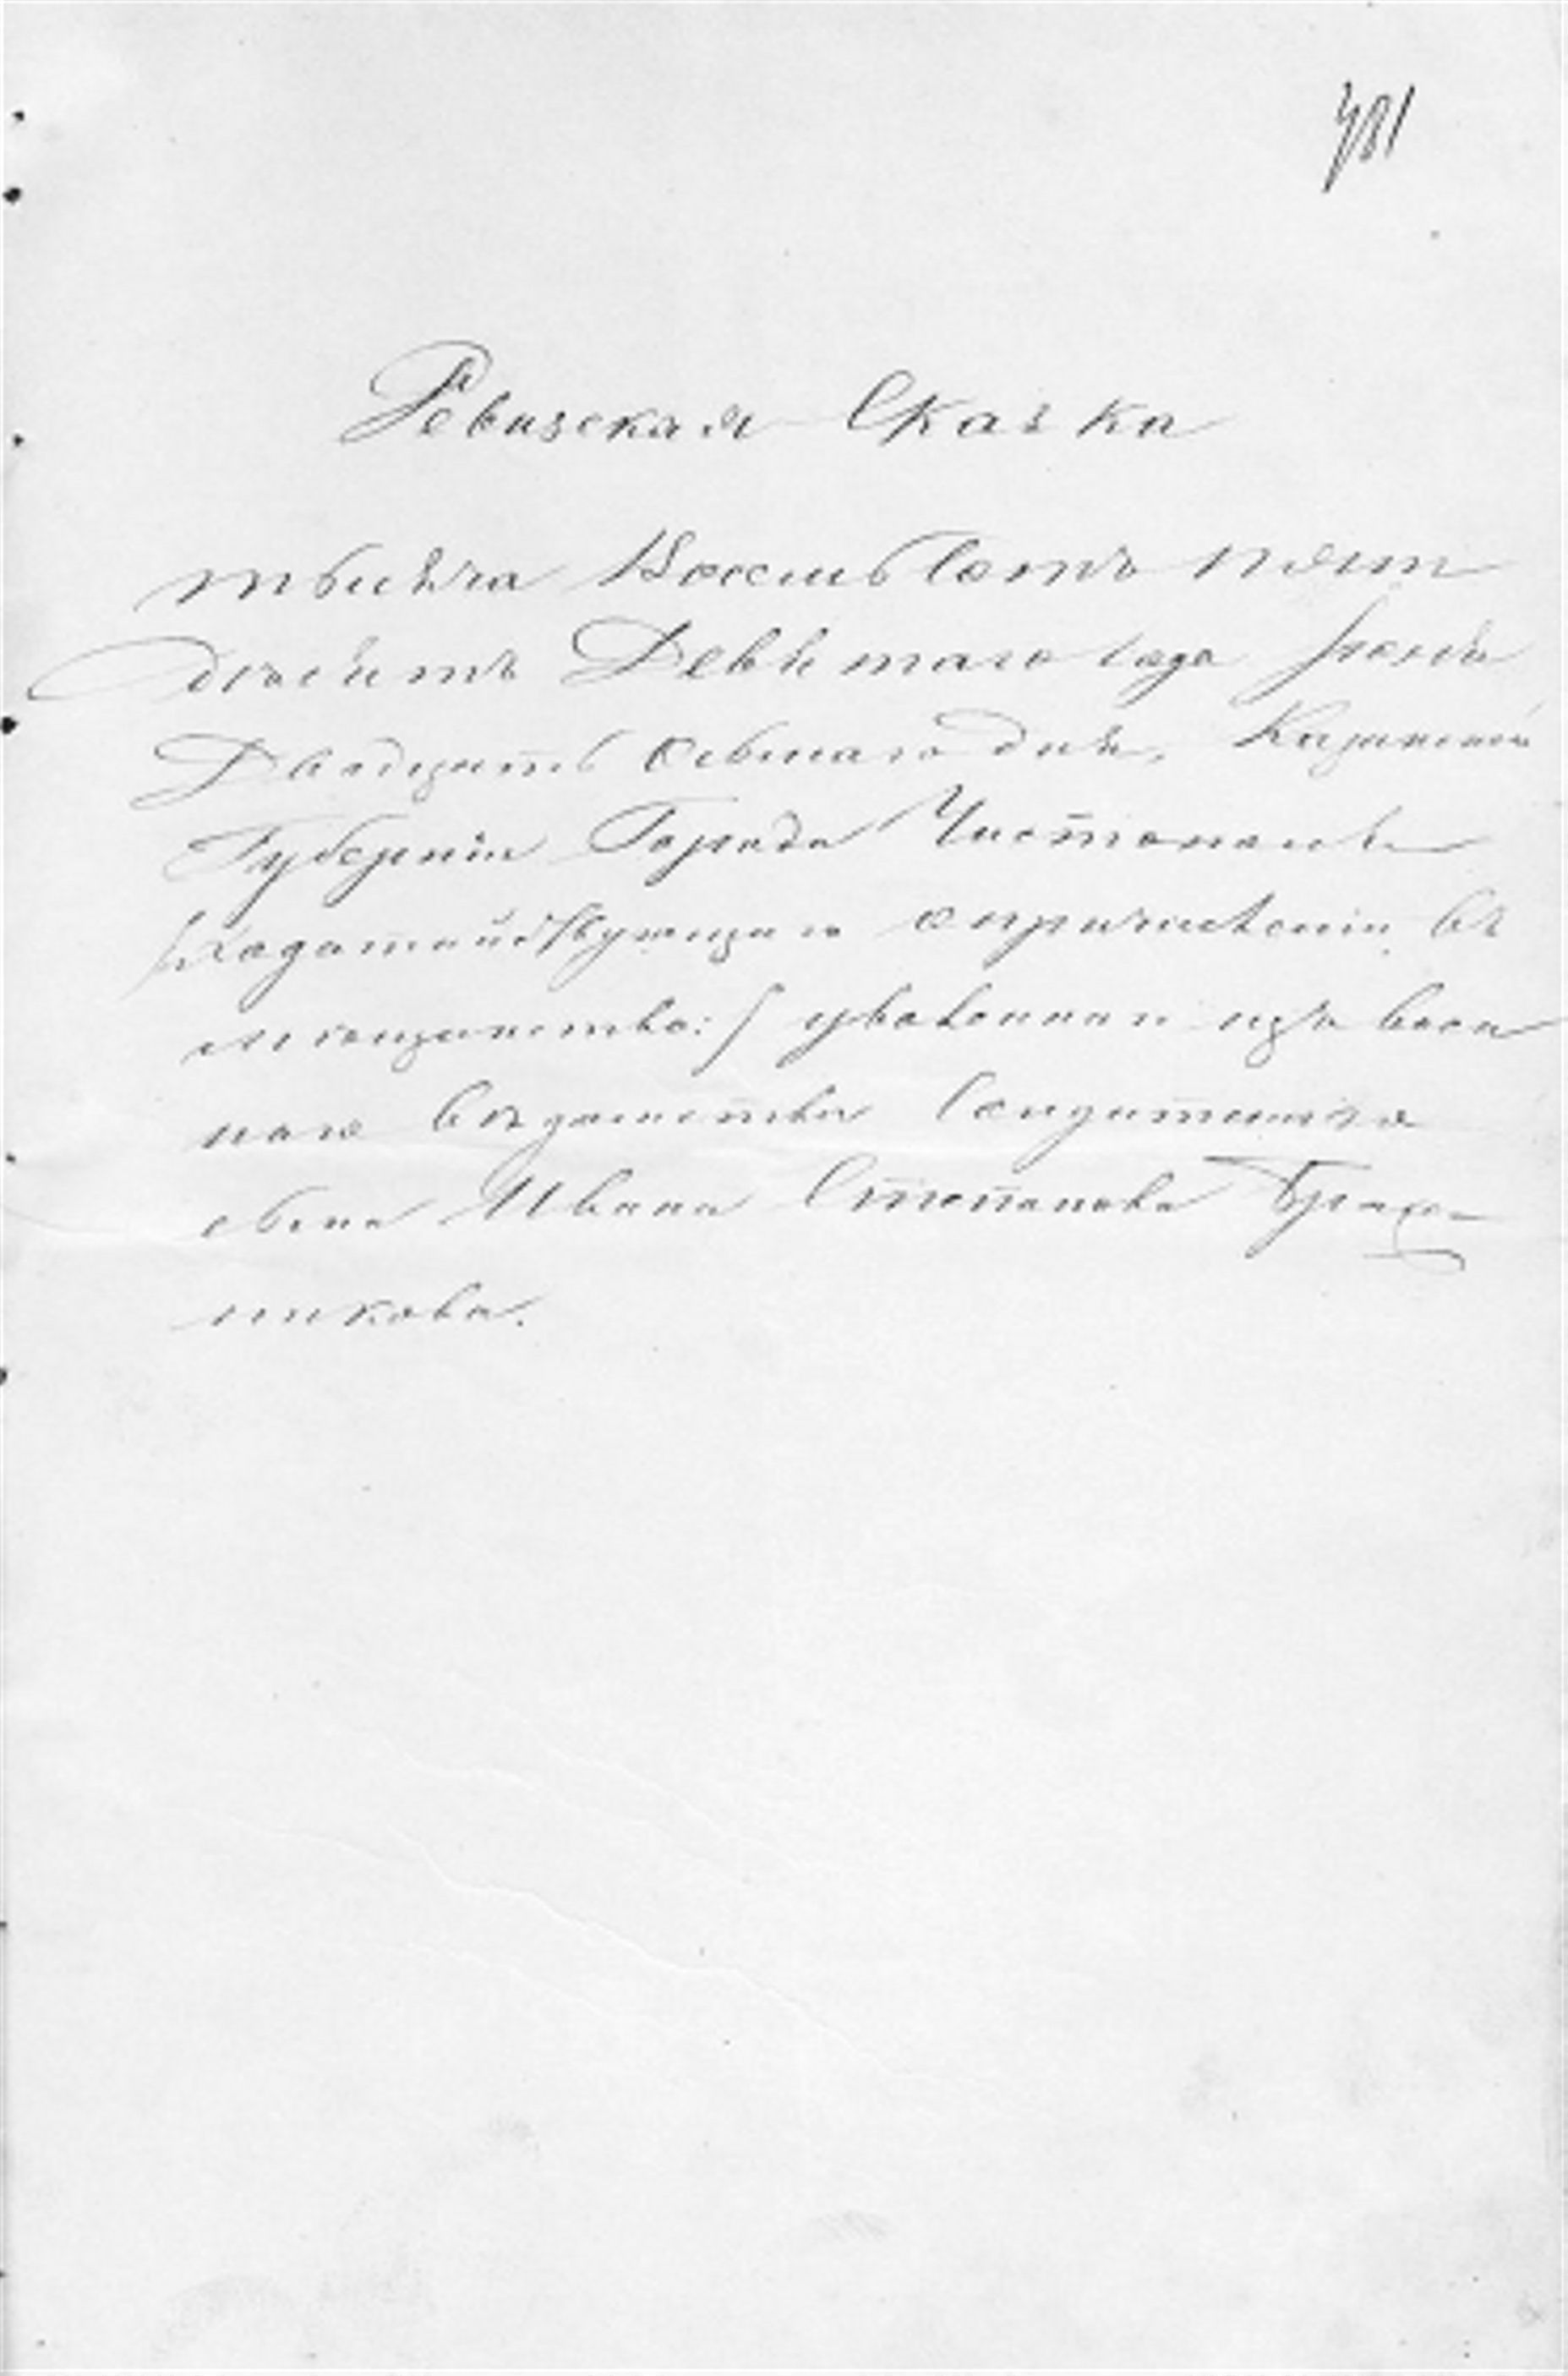 781
Ревизская Сказка
тысяча Восемь Сотъ пять
десятъ Девятаго года
Двадцать осьмаго дня, Казанской
Губернiи Города Чистополя
/:ходатайствующаго опричисленiи въ
мещанство:/ уволеннаго изъ воен
наго ведомства Солдатскаго
сына Ивана Степанова
никова.